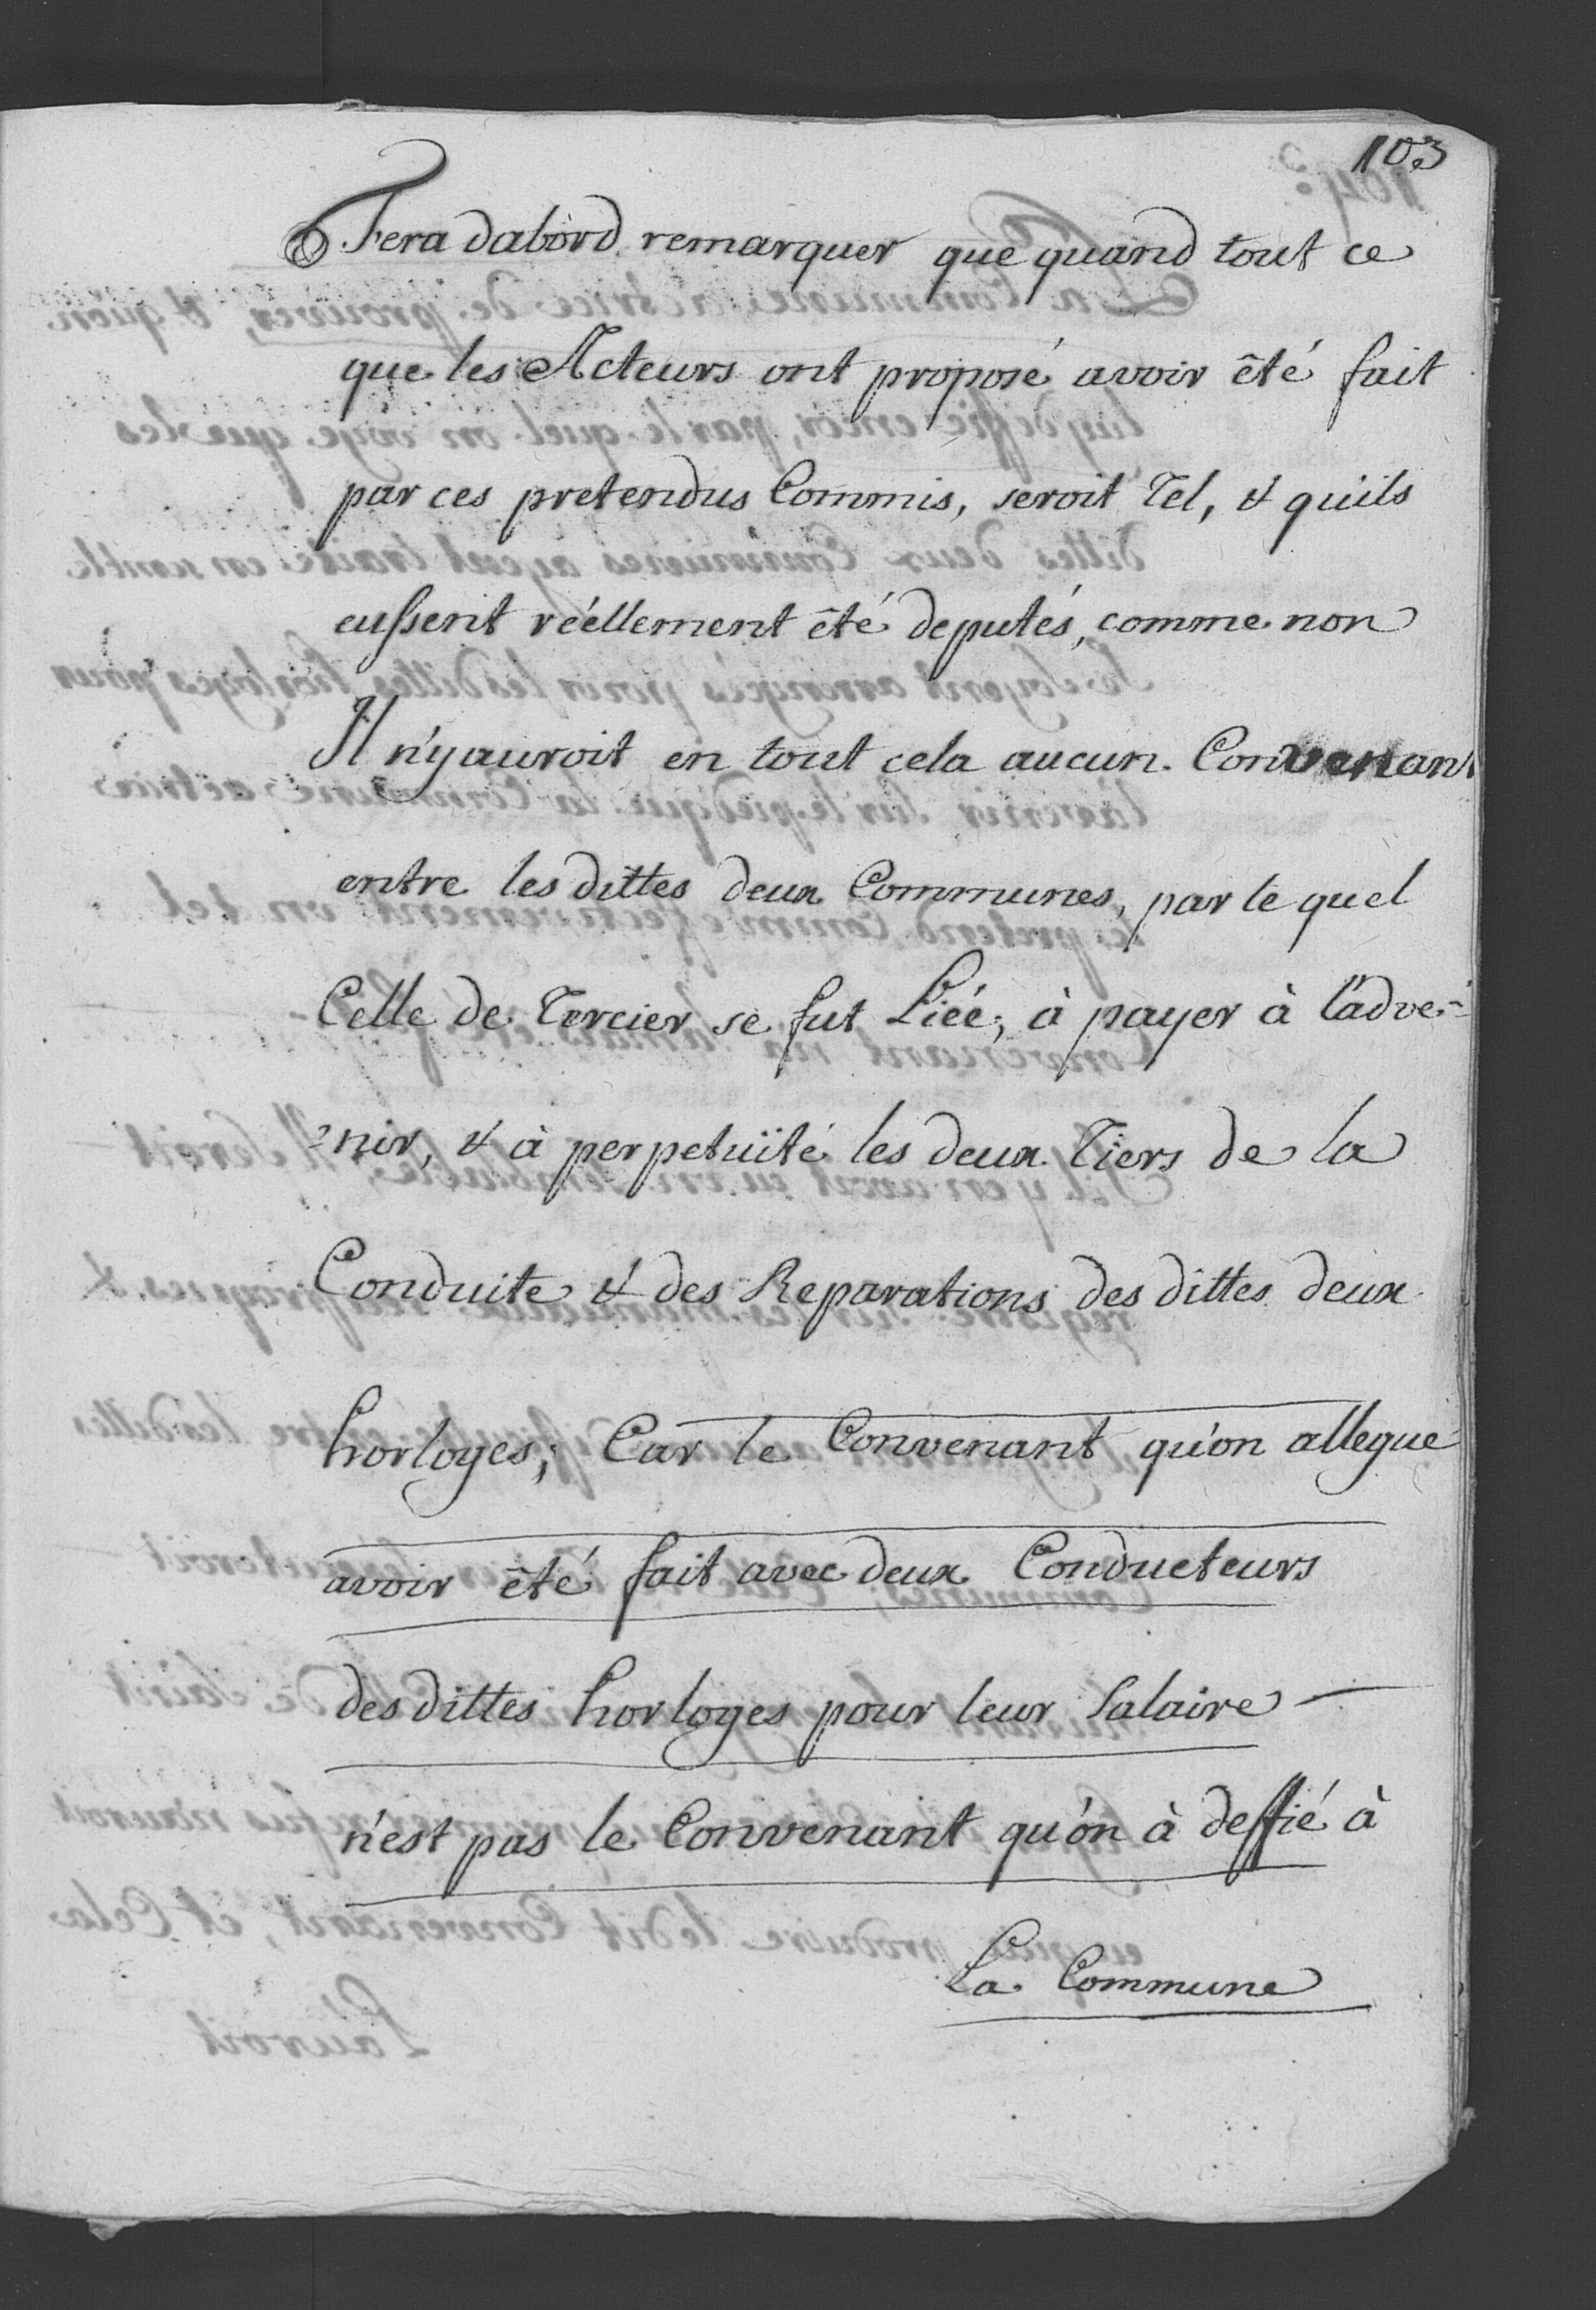 103
Fera dabord remarquer que quand tout ce
que les Acteurs ont proposé avoir êté fait
par ces pretendus Commis, seroit Tel, & qu'ils
eussent réellement êté deputés, comme non
Il n'y auroit en tout cela aucun Convenant
entre les dittes deux Communes, par le quel
Celle de Torcier se fut Liée, à payer à l'adve-
nir, & à perpetuïté les deux Tiers de la
Conduite & des Reparations des dittes deux
horloges; Car le Convenant qu'on allegue
avoir êté fait avec deux Conducteurs
des dittes horloges pour leur Salaire —
n'est pas le Convenant qu'on à deffié à
La Commune